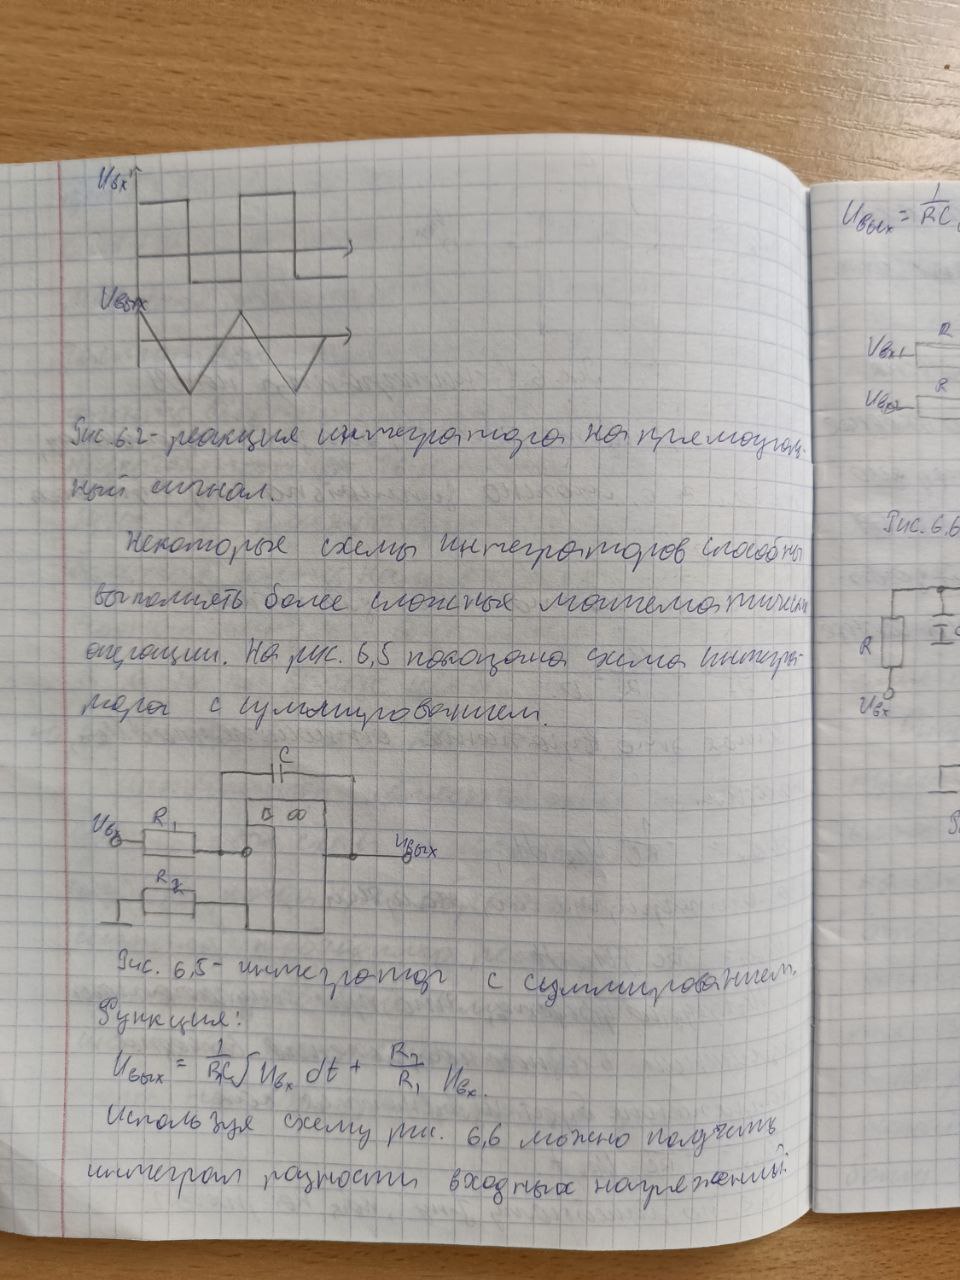 Uвх
Uвых
Рис. 6.2 - реакция интегратора на прямоуголь-
ный сигнал.
Некоторые схемы интеграторов способны
выполнять более сложные математически
операции. На рис. 6,5 показана схема интегра-
тора с суммированием.
C
▷ ∞
Uвх
R1
Uвых
R2
Рис. 6,5 - интегратор с суммированием.
Функция:
Uвых = 1/RC ∫ Uвх dt + R2/R1 Uвх.
Используя схему рис. 6,6 можно получить
интеграл разности входных напряжений:
Uвых = 1/RC
R
Uвх1
R
Uвх2
Рис. 6.6
R
Uвх